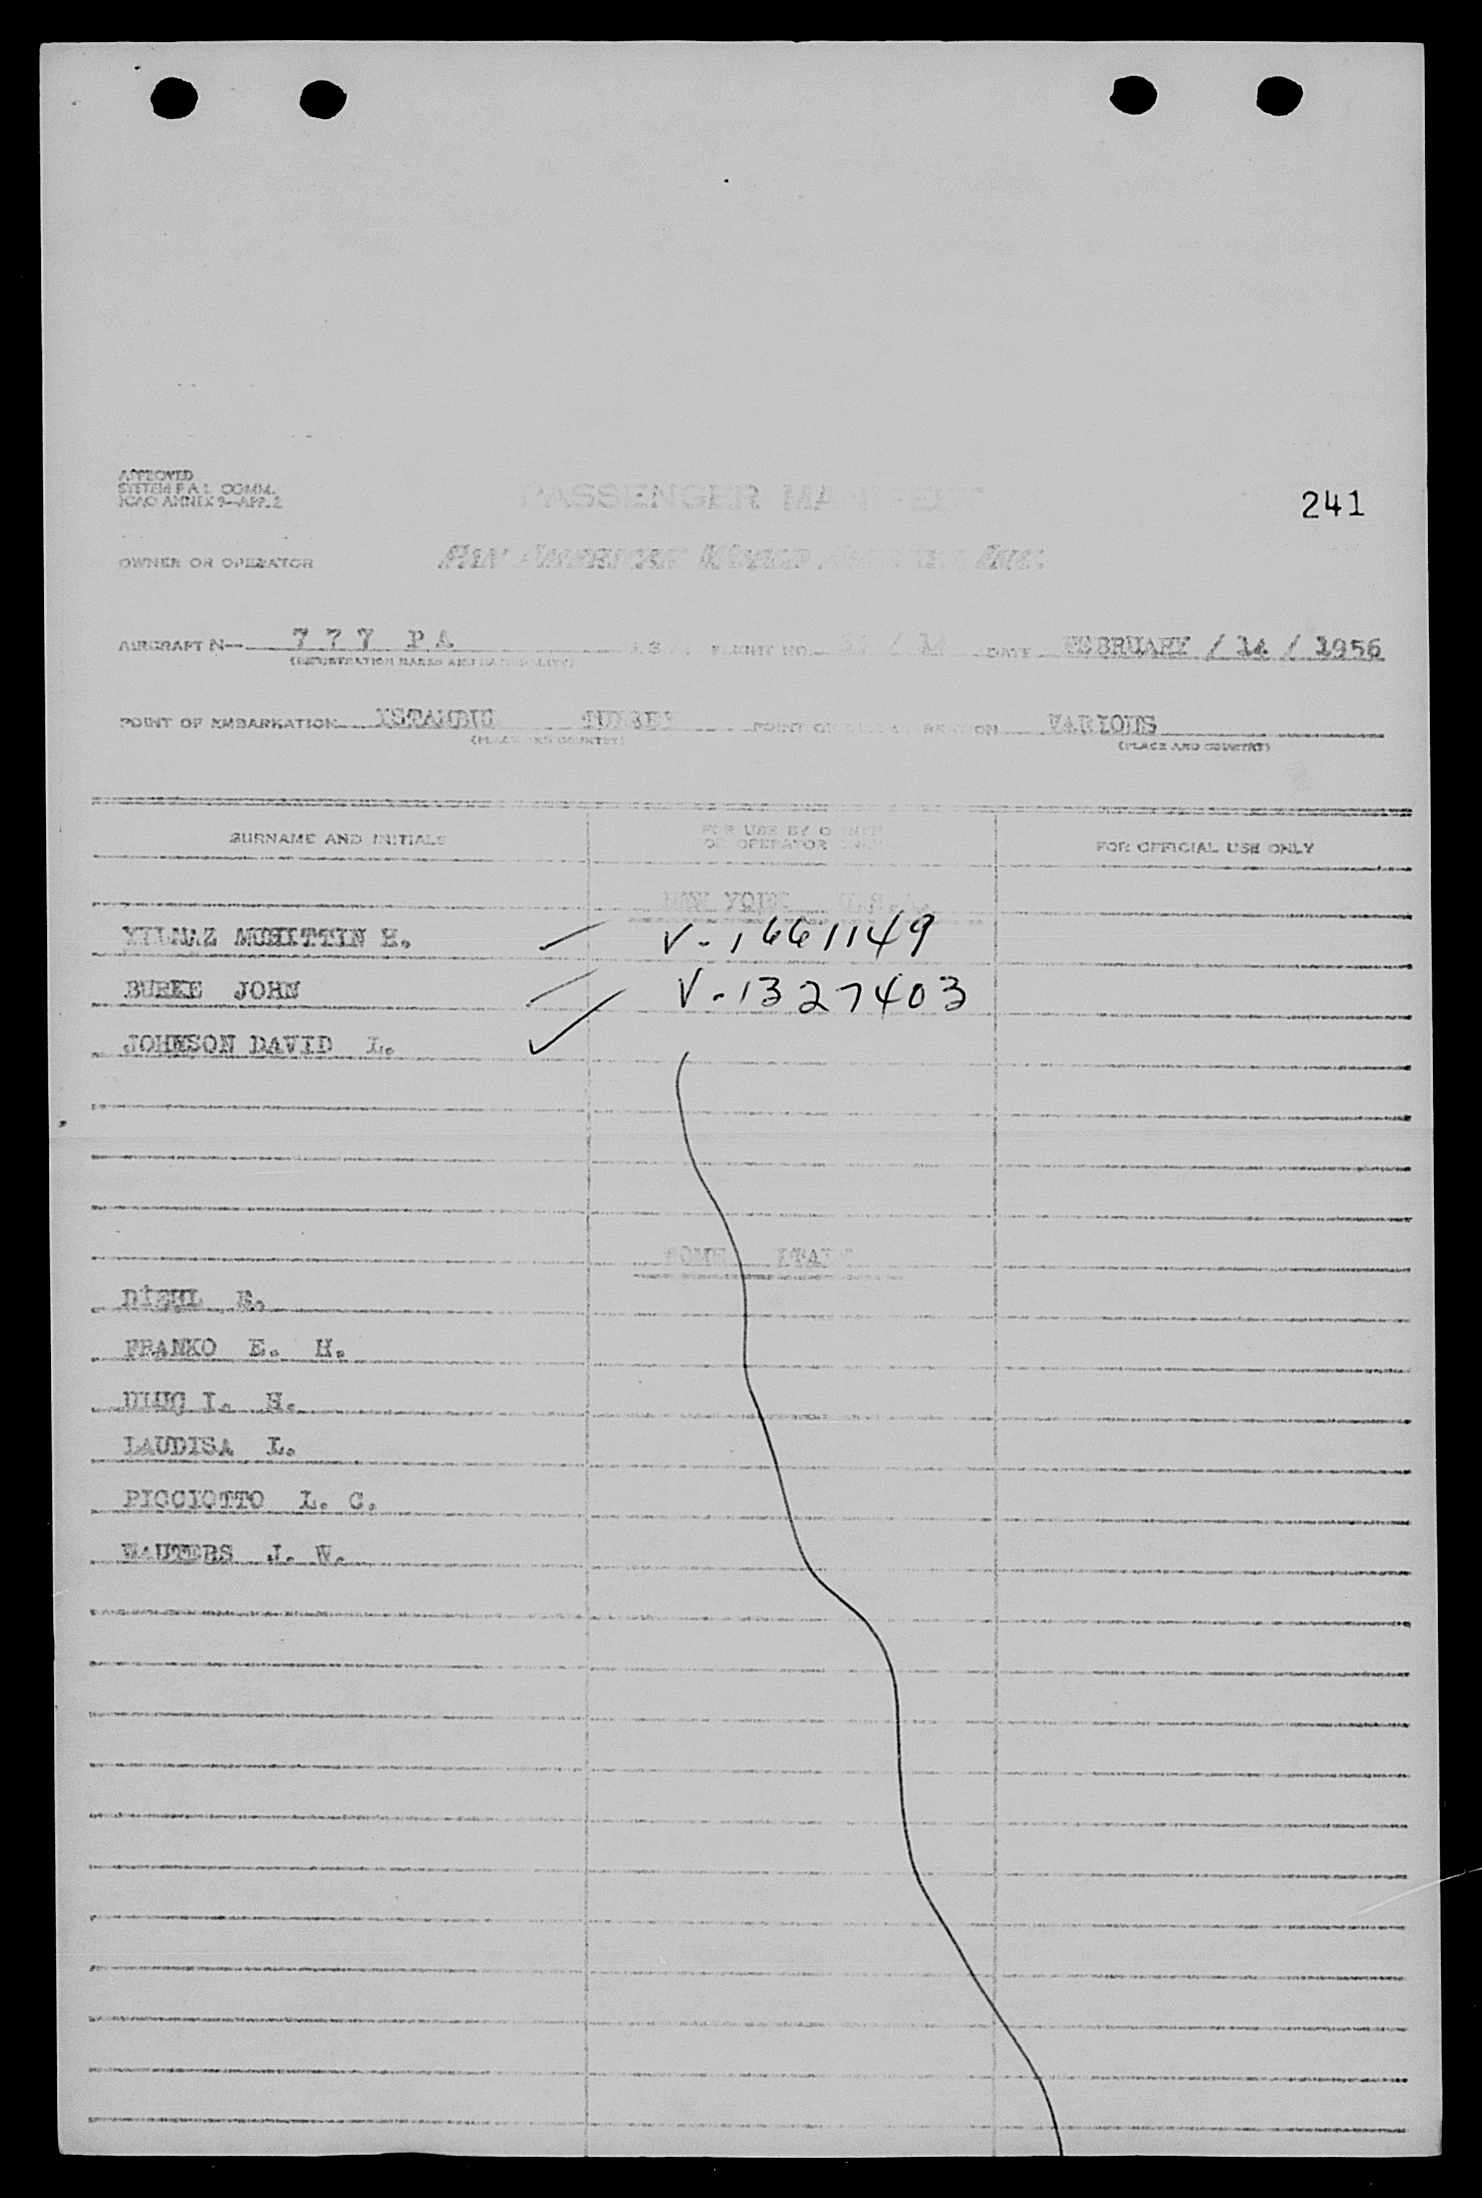 APPROVED
SYSTEM F.A.L. COMM.
ICAO ANNEX 9—APP. 2
PASSENGER MANIFEST
241
OWNER OR OPERATOR PAN AMERICAN WORLD AIRWAYS, INC.
AIRCRAFT N— 777 PA FLIGHT NO. / 14 DATE FEBRUARY / 14 / 1956
(REGISTRATION MARKS AND NATIONALITY)
POINT OF EMBARKATION ISTANBUL TURKEY POINT OF DISEMBARKATION VARIOUS
(PLACE AND COUNTRY) (PLACE AND COUNTRY)
SURNAME AND INITIALS
FOR USE BY OWNER
OR OPERATOR ONLY
FOR OFFICIAL USE ONLY
NEW YORK U.S.A.
YILMAZ MUHITTIN H. V-1661149
BURKE JOHN V-1327403
JOHNSON DAVID L.
ROME ITALY
DIEHL E.
FRANKO E. H.
ULUG I. H.
LAUDISA L.
PICCIOTTO L. C.
WAUTERS J. W.